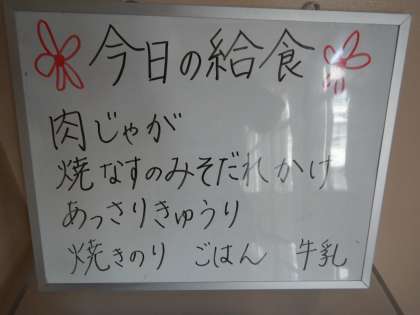 今日の給食
肉じゃが
焼なすのみそだれかけ
あっさりきゅうり
焼きのり ごはん 牛乳